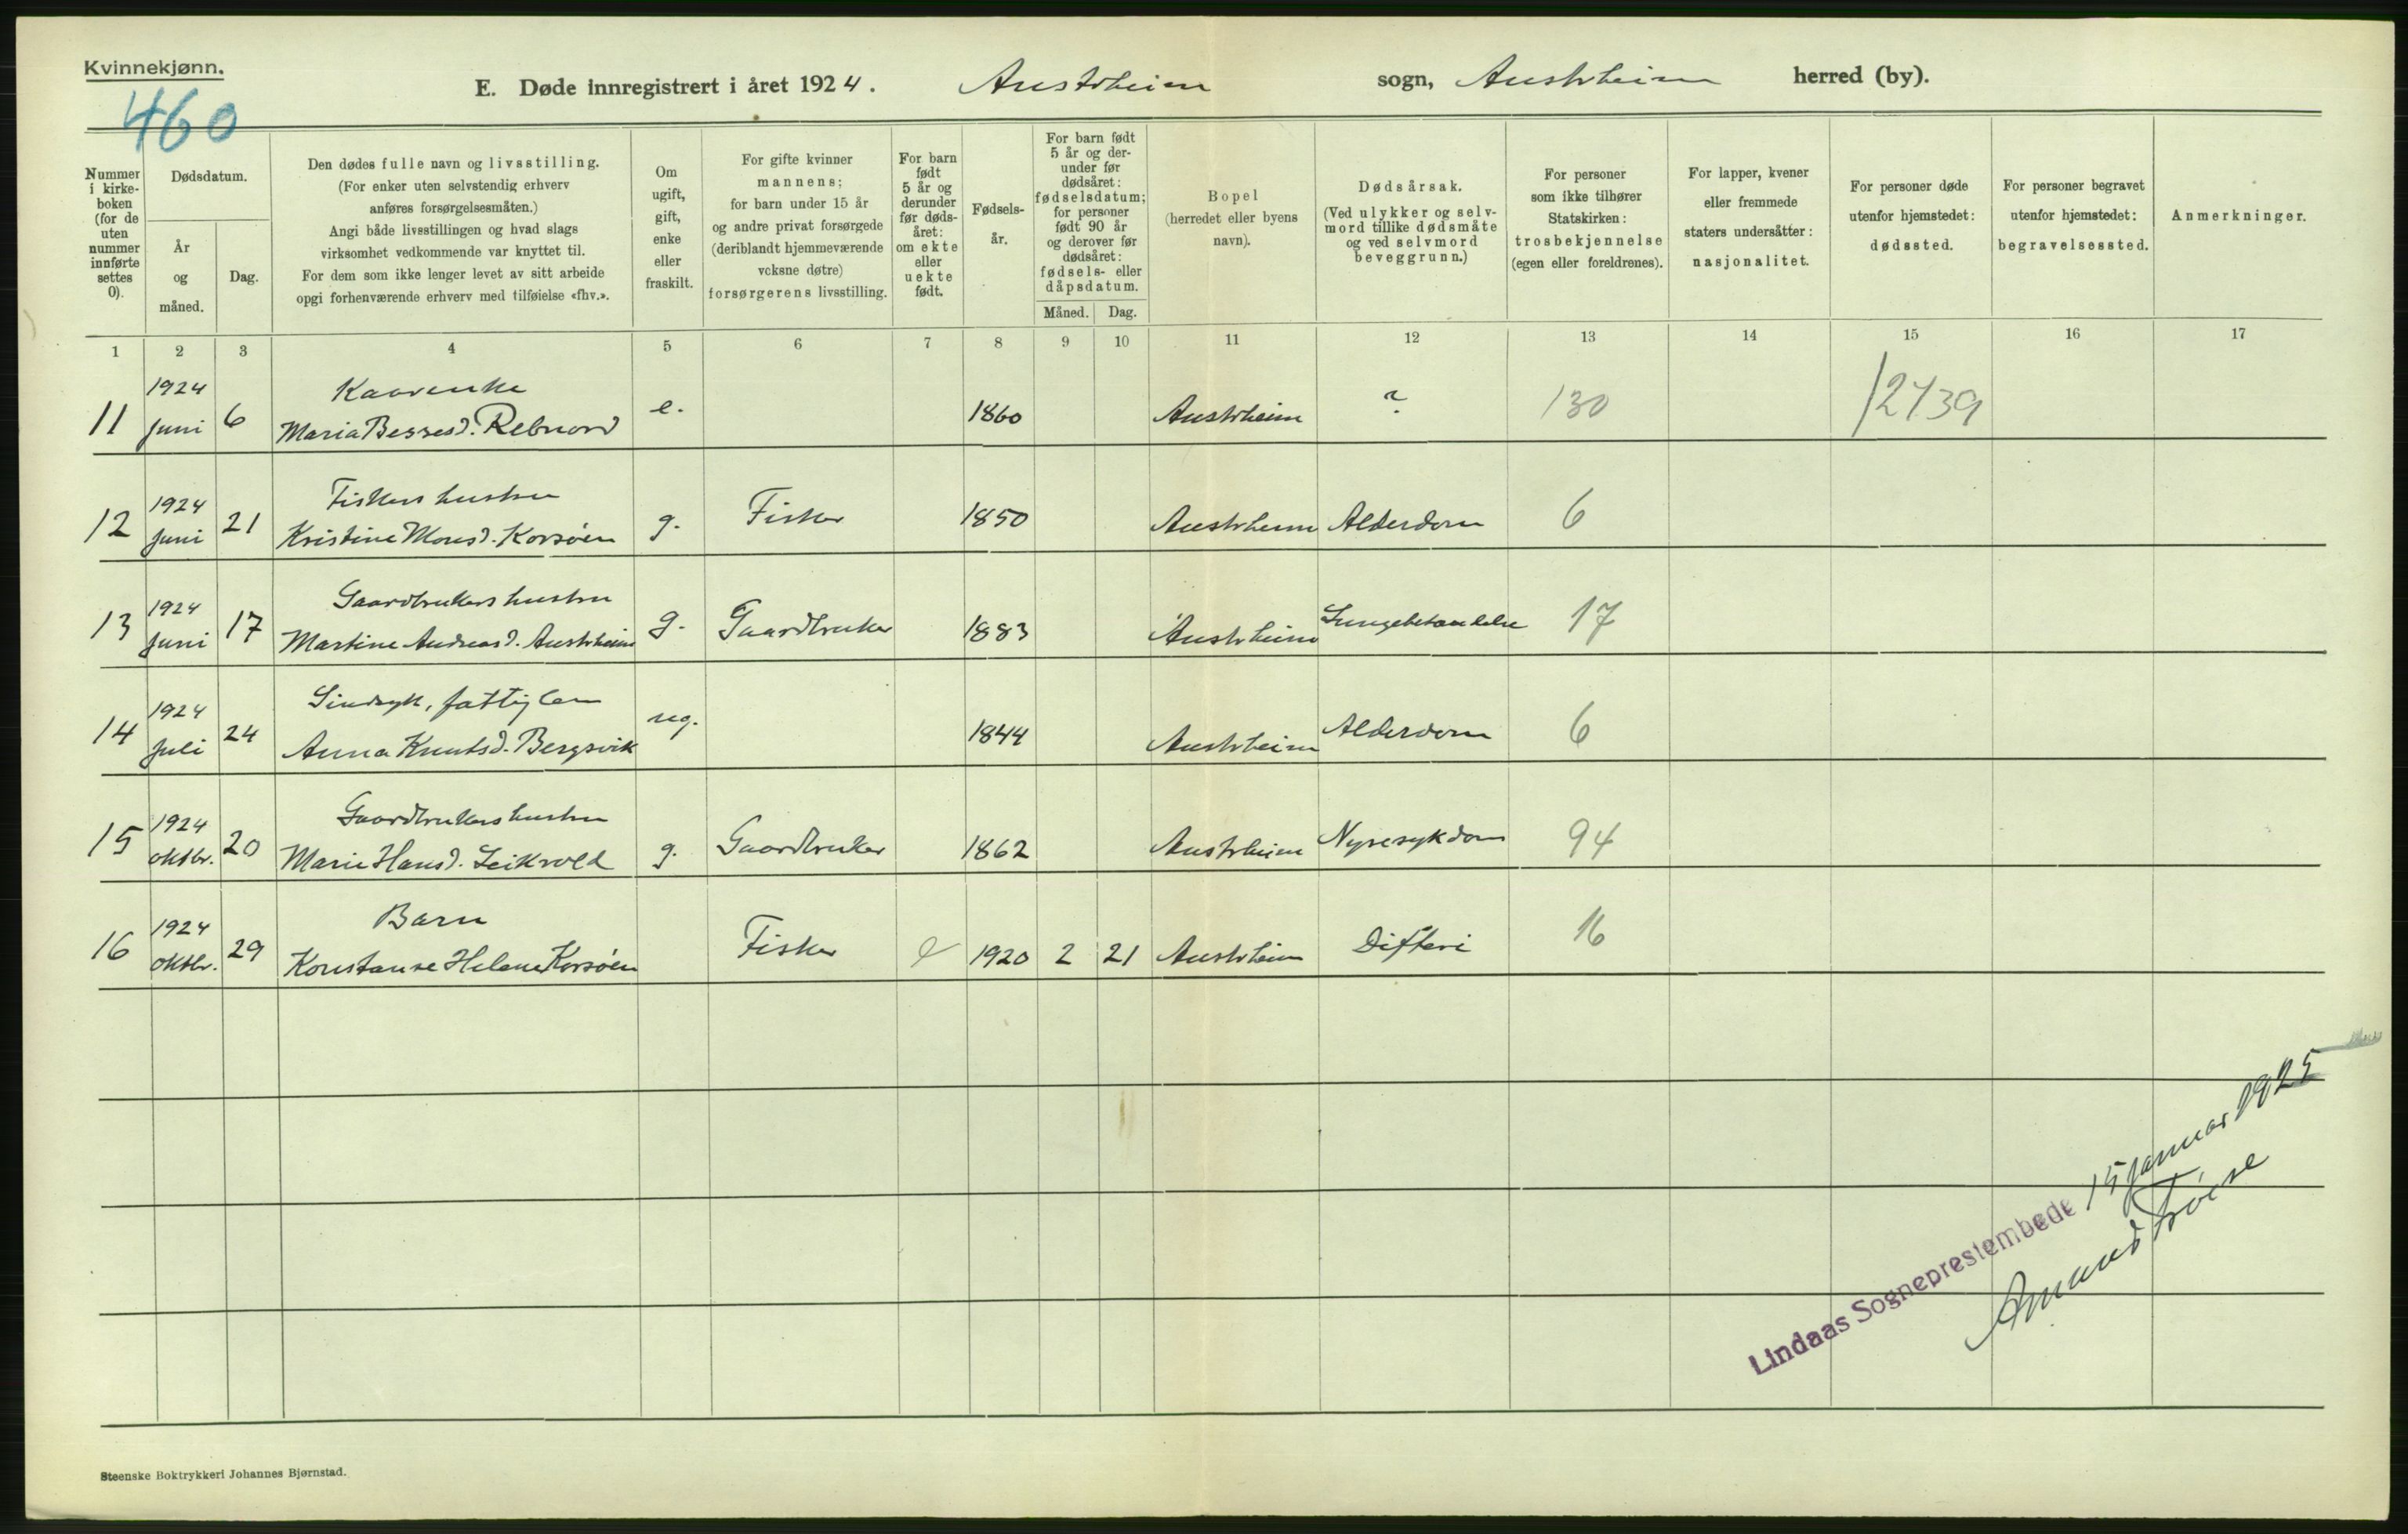 Kvinnekjønn.
460
E. Døde innregistrert i året 1924. Austrheim sogn, Austrheim herred (by).
Nummer i kirke-boken (for de uten nummer innførte settes 0).
Dødsdatum.
År og måned.
Dag.
Den dødes fulle navn og livsstilling.
(For enker uten selvstendig erhverv
anføres forsørgelsesmåten.)
Angi både livsstillingen og hvad slags
virksomhet vedkommende var knyttet til.
For dem som ikke lenger levet av sitt arbeide
opgi forhenværende erhverv med tilføielse «fhv.».
Om ugift, gift, enke eller fraskilt.
For gifte kvinner
mannens;
for barn under 15 år
og andre privat forsørgede
(deriblandt hjemmeværende
voksne døtre)
forsørgerens livsstilling.
For barn født 5 år og derunder før døds-året: om ekte eller uekte født.
Fødsels-år.
For barn født
5 år og der-
under før
dødsåret:
fødselsdatum;
for personer
født 90 år
og derover før
dødsåret:
fødsels- eller
dåpsdatum.
Måned. Dag.
Bopel
(herredet eller byens
navn).
Dødsårsak.
(Ved ulykker og selv-
mord tillike dødsmåte
og ved selvmord
beveggrunn.)
For personer
som ikke tilhører
Statskirken:
trosbekjennelse
(egen eller foreldrenes).
For lapper, kvener
eller fremmede
staters undersåtter:
nasjonalitet.
For personer døde
utenfor hjemstedet:
dødssted.
For personer begravet
utenfor hjemstedet:
begravelsessted.
Anmerkninger.
1 2 3 4 5 6 7 8 9 10 11 12 13 14 15 16 17
1924 Kaarenke
11 Juni 6 Maria Besses d. Rebnord e. 1860 Austrheim ? 130 12739
1924 Fiskers hustru
12 Juni 21 Kristine Mons d. Korsøen g. Fisker 1850 Austrheim Alderdom 6
1924 Gaardbrukers hustru
13 Juni 17 Martine Andreas d. Austrheim g. Gaardbruker 1883 Austrheim Lungebetændelse 17
1924 Sindsyk, fattiglem
14 Juli 24 Anna Knuts d. Bergsvik ug. 1844 Austrheim Alderdom 6
1924 Gaardbrukers hustru
15 oktbr. 20 Marie Hans d. Leikvold g. Gaardbruker 1862 Austrheim Nyresykdom 94
1924 Barn
16 oktbr. 29 Konstanse Helene Korsøen Fisker e 1920 2 21 Austrheim Difteri 16
Lindaas Sogneprestembede 15 januar 1925
Amund
Steenske Boktrykkeri Johannes Bjørnstad.